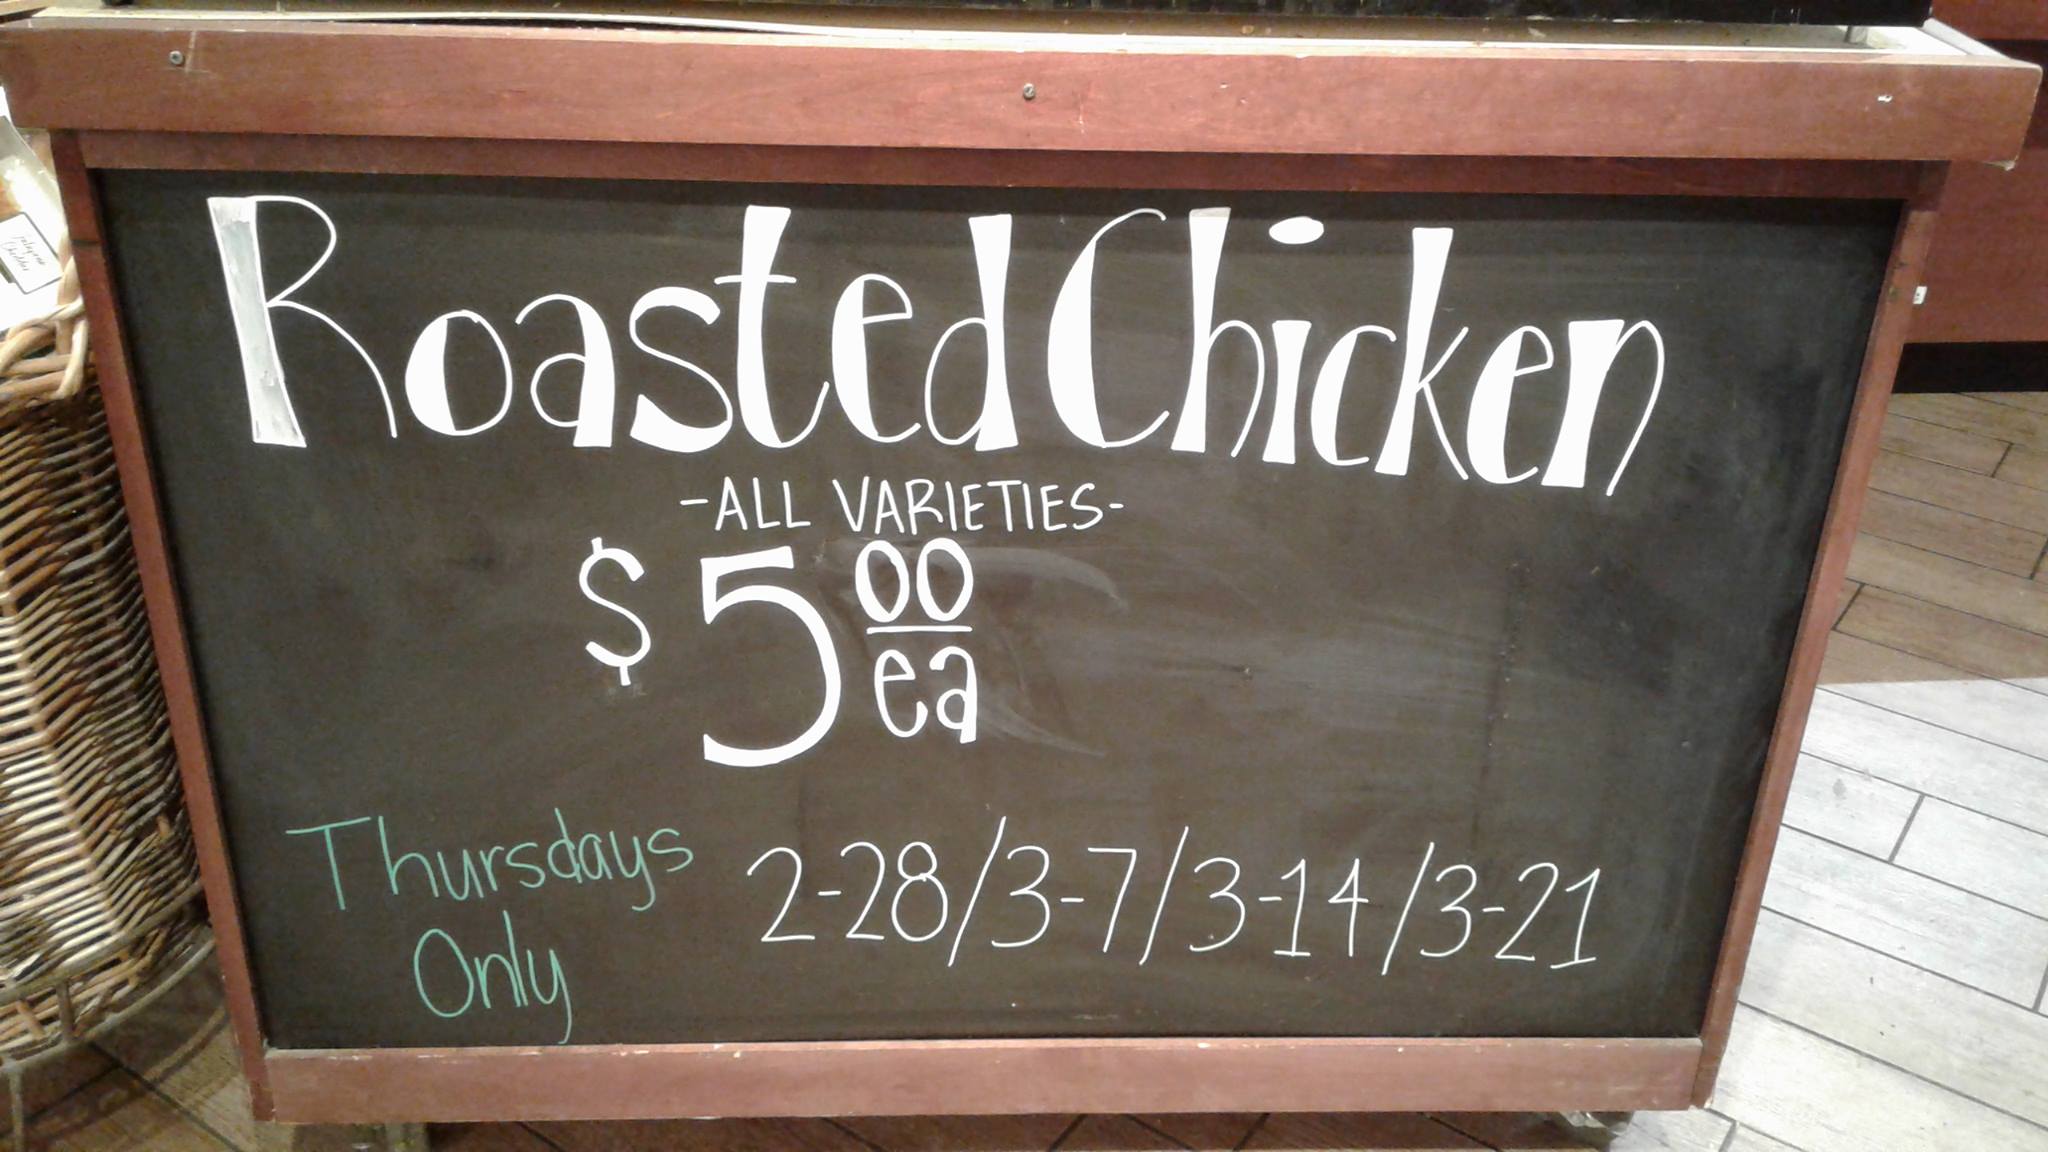 Roasted Chicken
-ALL VARIETIES-
$5 00 ea
Thursdays Only
2-28/3-7/3-14/3-21